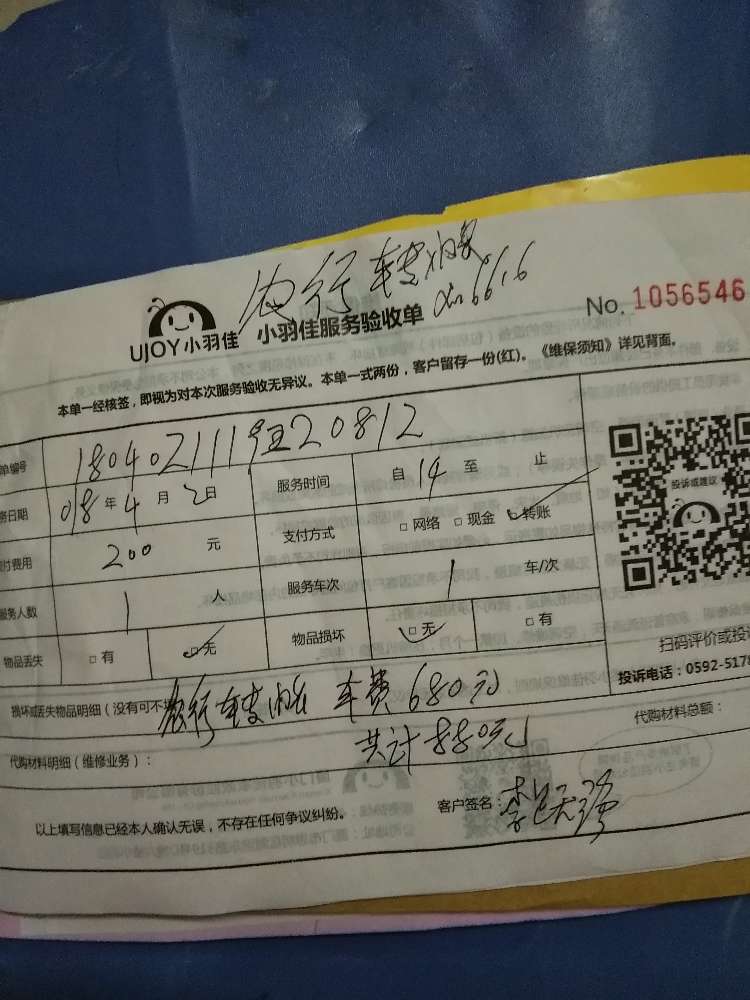 农行转账
6616
UJOY小羽佳 小羽佳服务验收单 No. 1056546
本单一经核签，即视为对本次服务验收无异议。本单一式两份，客户留存一份(红)。《维保须知》详见背面。
单编号 180402111 20812
务日期 018年4月2日 服务时间 自14至 止
付费用 200元 支付方式 □网络 □现金 □转账
服务人数 1人 服务车次 1车/次
物品丢失 □有 □无 物品损坏 □无 □有
投诉或建议
扫码评价或投诉
投诉电话：0592-5178
损坏或丢失物品明细（没有可不填
农行转账 车费680元
共计880元
代购材料明细（维修业务）： 代购材料总额：
以上填写信息已经本人确认无误，不存在任何争议纠纷。 客户签名：